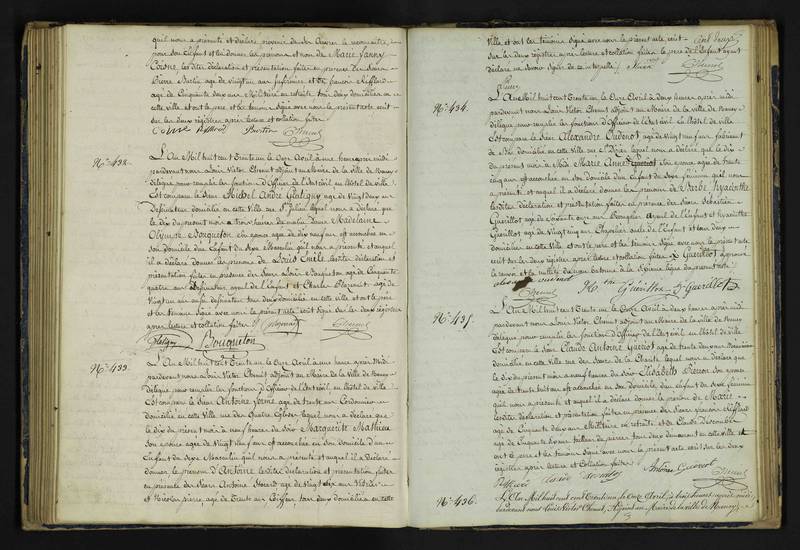 qu'il nous a présenté et déclaré
pour son Enfant et lui donner les prénoms et nom de Marie Fanny
les dites déclaration et présentation faites en présence des Sieurs
Pierre Burtin âgé de vingt six ans
âgé de Cinquante deux ans Militaire en retraite tous deux domiciliés en
cette ville et ont le père et les témoins signé avec nous le présent acte écrit
sur les deux registres après lecture et collation faites
Burtin
No. 432.
L'An Mil huit cent Trente un le Onze Avril à une heure après midi
pardevant nous Louis Victor Chenut adjoint au Maire de la Ville de Nancy
délégué pour remplir les fonctions d'Officier de l'Etat civil en l'hôtel de Ville
Est comparu le Sieur Michel André Glatigny âgé de Vingt deux ans
domicilié en cette Ville rue St. Julien lequel nous a déclaré que
le Dix du présent mois à Trois heures du matin dame Madelaine
Olympe Bouqueton son épouse âgée de dix neuf ans est accouchée en
son domicile d'un Enfant du Sexe Masculin qu'il nous a présenté et auquel
il a déclaré donner les prénoms de Louis Emile les dites déclaration et
présentation faites en présence des Sieurs Louis Bouqueton âgé de Cinquante
quatre ans ayeul de l'Enfant et Charles
Vingt un ans tous deux domiciliés en cette ville et ont le père
et les témoins signé avec nous le présent acte écrit sur les deux registres
après lecture et collation faites
Bouqueton
No. 433.
L'An Mil huit cent Trente un le Onze Avril à une heure après Midi
pardevant nous Louis Victor Chenut adjoint au Maire de la Ville de Nancy
délégué pour remplir les fonctions d'Officier de l'Etat civil en l'hôtel de Ville
Est comparu le Sieur Antoine âgé de trente ans Cordonnier
domicilié en cette Ville rue des Quatre Eglises lequel nous a déclaré que
le Dix du présent mois à neuf heures du Soir Marguerite Mathieu
son épouse âgée de Vingt neuf ans est accouchée en son domicile d'un
Enfant du Sexe Masculin qu'il nous a présenté et auquel il a déclaré
donner le prénom d'Antoine les dites déclaration et présentation faites
en présence des Sieurs Antoine âgé de Vingt Six ans
et Nicolas Pierre, âgé de Trente ans Coiffeur, tous deux domiciliés en cette
Ville, et ont les témoins signé avec nous le présent acte écrit
sur les deux registres après lecture et collation faites, le père de l'Enfant ayant
déclaré ne savoir signer de ce interpellé
No. 434.
L'An Mil huit cent Trente un le Onze Avril à deux heures après midi
pardevant nous Louis Victor Chenut adjoint au Maire de la Ville de Nancy
délégué pour remplir les fonctions d'Officier de l'Etat civil en l'hôtel de Ville
Est comparu le Sieur Alexandre Dudenot âgé de vingt neuf ans fabricant
domicilié en cette Ville rue St. Dizier lequel nous a déclaré que le dix
du présent mois à Midi Marie Anne Guerillot son épouse âgée de trente
cinq ans est accouchée en son domicile d'un enfant du Sexe féminin qu'il nous
a présenté et auquel il a déclaré donner les prénoms de Barbe Hyacinthe
les dites déclaration et présentation faites en présence des Sieurs Sébastien
Guerillot âgé de Soixante ans ayeul de l'Enfant et Hyacinthe
Guerillot âgé de Vingt cinq ans Chapelier oncle de l'Enfant et tous deux
domiciliés en cette Ville, et ont le père et les témoins signé avec nous le présent acte
écrit sur les deux registres après lecture et collation faites
Guerillot
No. 435.
L'An Mil huit cent Trente un le Onze Avril à deux heures après midi
pardevant nous Louis Victor Chenut adjoint au Maire de la Ville de Nancy
délégué pour remplir les fonctions d'Officier de l'Etat civil en l'hôtel de Ville
Est comparu le Sieur Claude Antoine âgé de trente deux ans
domicilié en cette Ville rue des Sœurs de la Charité lequel nous a déclaré que
le Dix du présent mois à neuf heures du Soir Elisabeth Pierson son épouse
âgée de trente huit ans est accouchée en son domicile d'un enfant du Sexe féminin
qu'il nous a présenté et auquel il a déclaré donner le prénom de Marie
les dites déclaration et présentation faites en présence des Sieurs François
âgé de Cinquante deux ans Militaire en retraite et de Claude
âgé de Cinquante ans tailleur de pierres tous deux demeurant en cette ville et
ont le père et les témoins signé avec nous le présent acte écrit sur les deux
registres après lecture et Collation faites
No. 436.
L'An Mil huit cent Trente un, le Onze Avril, à trois heures après midi
pardevant nous Louis Victor Chenut, Adjoint au Maire de la ville de Nancy